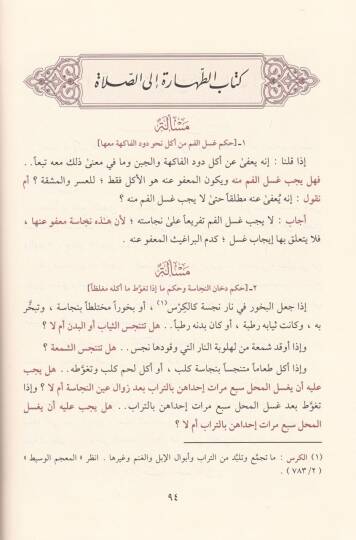 كتاب الطهارة إلى الصلاة
مسألة
١-[حكم غسل الفم من أكل نحو دود الفاكهة معها]
إذا قلنا : إنه يعفىٰ عن أكل دود الفاكهة والجبن وما في معنىٰ ذلك معه تبعاً..
فهل يجب غسل الفم منه ويكون المعفو عنه هو الأكل فقط ؛ للعسر والمشقة ؟ أم
نقول : إنه يُعفىٰ عنه مطلقاً حتىٰ لا يجب غسل الفم منه ؟
أجاب : لا يجب غسل الفم تفريعاً علىٰ نجاسته ؛ لأن هٰذه نجاسة معفو عنها ،
فلا يتعلق بها إيجاب غسل ؛ كدم البراغيث المعفو عنه .
مسألة
٢-[حكم دخان النجاسة وحكم ما إذا تغوّط ما أكله مغلظاً]
إذا جعل البخور في نار نجسة كالكِرْس(١) ، أو بخوراً مختلطاً بنجاسة ، وتبخَّر
به ، وكانت ثيابه رطبة ، أو كان بدنه رطباً.. هل تتنجس الثياب أو البدن أم لا ؟
وإذا أوقد شمعة من لهلوبة النار التي وقودها نجس.. هل تتنجس الشمعة ؟
وإذا أكل طعاماً متنجساً بنجاسة كلب ، أو أكل لحم كلب وتغوَّطه.. هل يجب
عليه أن يغسل المحل سبع مرات إحداهن بالتراب بعد زوال عين النجاسة أم لا ؟ وإذا
تغوَّط بعد غسل المحل سبع مرات إحداهن بالتراب.. هل يجب عليه أن يغسل
المحل سبع مرات إحداهن بالتراب أم لا ؟
(١) الكرس : ما تجمَّع وتلبَّد من التراب وأبوال الإبل والغنم وغيرها . انظر « المعجم الوسيط »
( ٧٨٣/٢ ) .
٩٤